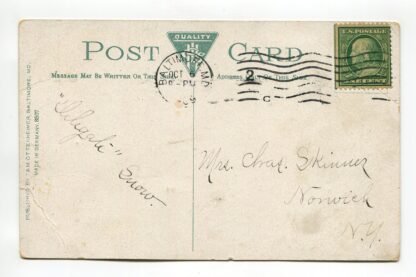 QUALITY
POST CARD
MESSAGE MAY BE WRITTEN ON THIS
ADDRESS
ONLY ON THIS SIDE
BALTIMORE, MD.
OCT
2
C
U.S. POSTAGE
"Delegate" Snow.
Mrs. Chas. Skinner
Norwich
N.Y.
PUBLISHED BY I. & M. OTTENHEIMER, BALTIMORE, MD.
MADE IN GERMANY